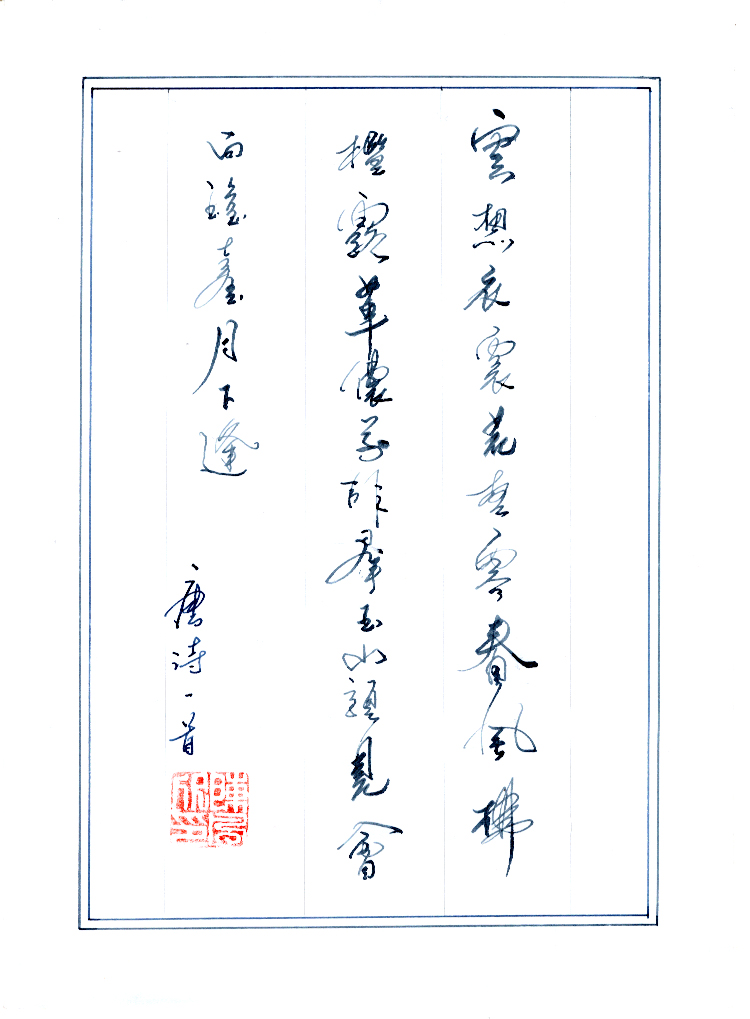 雲想衣裳花想容春風拂
檻露華濃若非羣玉山頭見會
向瑤臺月下逢
唐詩一首